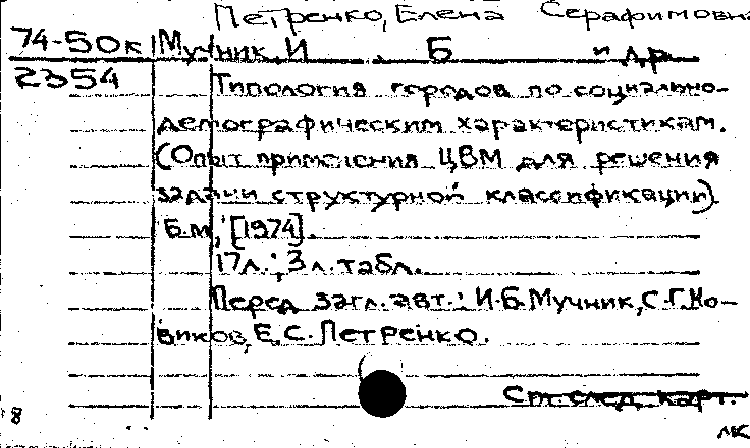 Петренко, Елена Серафимовна
74-50к Мучник, И. Б. и др.
2354
Типология городов по социально-
демографическим характеристикам.
(Опыт применения ЦВМ для решения
задачи структурной классификации).
Б.м., [1974].
17л.; 3 л. табл.
Перед загл. авт.: И.Б. Мучник, С.Г. Но-
виков, Е.С. Петренко.
См. след. карт.
8
МК